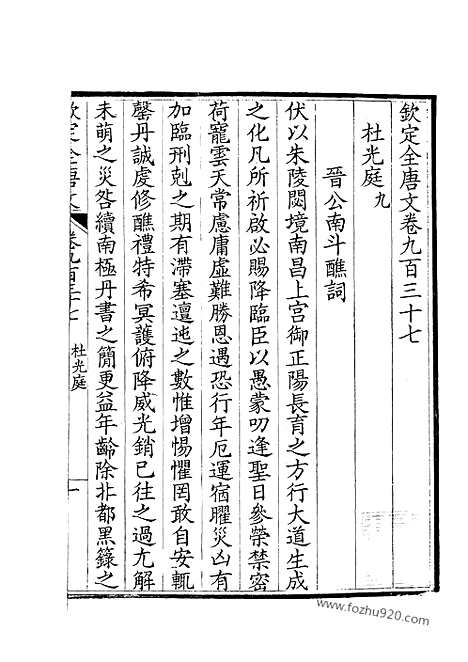 欽定全唐文卷九百三十七
杜光庭九
晉公南斗醮詞
伏以朱陵閟境南昌上宮御正陽長育之方行大道生成
之化凡所祈啟必賜降臨臣以愚蒙叨逢聖日參榮禁密
荷寵雲天常慮庸虛難勝恩遇恐行年厄運宿曜災凶有
加臨刑剋之期有滯塞邅迍之數惟增惕懼罔敢自安輒
罄丹誠虔修醮禮特希冥護俯降威光銷已往之過尤解
未萌之災咎續南極丹書之簡更益年齡除北都黑籙之
欽定全唐文
卷九百三十七
杜光庭
一
www.fozhu920.com